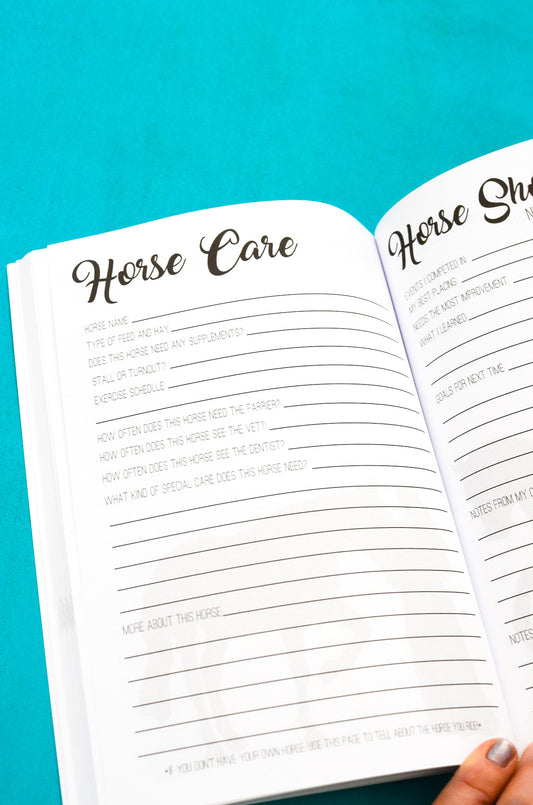 Horse Care
HORSE NAME
TYPE OF FEED AND HAY
DOES THIS HORSE NEED ANY SUPPLEMENTS?
STALL OR TURNOUT?
EXERCISE SCHEDULE
HOW OFTEN DOES THIS HORSE NEED THE FARRIER?
HOW OFTEN DOES THIS HORSE SEE THE VET?
HOW OFTEN DOES THIS HORSE SEE THE DENTIST?
WHAT KIND OF SPECIAL CARE DOES THIS HORSE NEED?
MORE ABOUT THIS HORSE
*IF YOU DON'T HAVE YOUR OWN HORSE, USE THIS PAGE TO TELL ABOUT THE HORSE YOU RIDE!*
Horse
EVENTS I COMPETED IN
MY BEST PLACING
NEEDS THE MOST IMPROVEMENT
WHAT I LEARNED
GOALS FOR NEXT TIME
NOTES FROM MY
NOTES